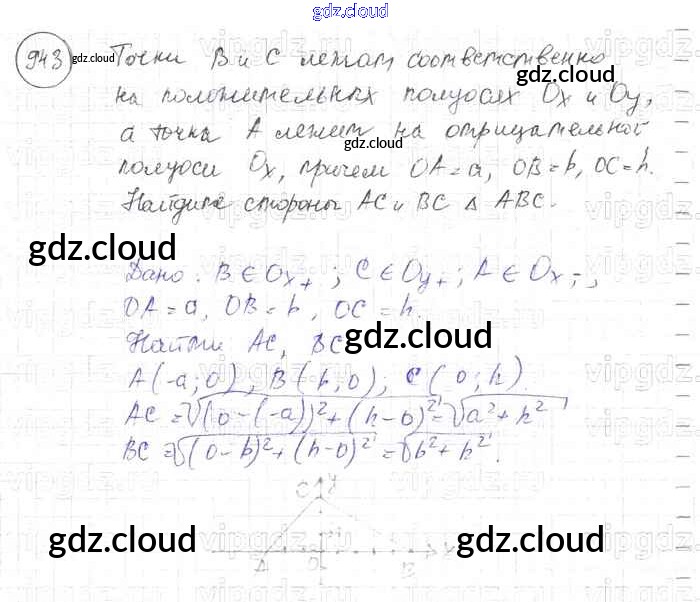 gdz.cloud
943 gdz.cloud Точки B и C лежат соответственно
gdz.cloud
на положительных полуосях Ox и Oy,
а точка A лежит на отрицательной
gdz.cloud
полуоси Ox, причем OA = a, OB = b, OC = h.
Найдите стороны AC и BC Δ ABC.
gdz.cloud
gdz.cloud
Дано: B ∈ Ox+; C ∈ Oy+; A ∈ Ox-,
OA = a, OB = b, OC = h.
gdz.cloud
Найти AC, BC
A(-a; 0), B(b; 0), C(0; h)
AC = √(0-(-a))²+(h-0)² = √a²+h²
BC = √(0-b)²+(h-0)² = √b²+h².
C y
gdz.cloud
gdz.cloud
A O B x